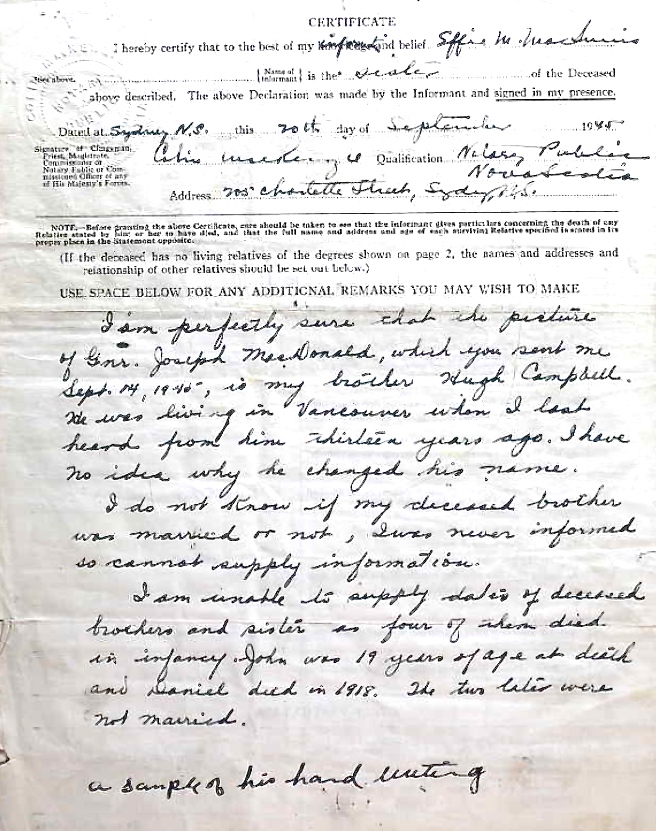 CERTIFICATE
I hereby certify that to the best of my information and belief Effie M. MacInnis
See above. {Name of Informant} is the sister of the Deceased
above described. The above Declaration was made by the Informant and signed in my presence.
Dated at Sydney N.S. this 20th day of September 1945
Signature of Clergyman, Priest, Magistrate, Commissioner or Notary Public or Commissioned Officer of any of His Majesty's Forces. Colin Mackenzie Qualification Notary Public
Nova Scotia
Address 205 Charlotte Street, Sydney N.S.
NOTE.—Before granting the above Certificate, care should be taken to see that the informant gives particulars concerning the death of any
Relative stated by him or her to have died, and that the full name and address and age of each surviving Relative specified is stated in its
proper place in the Statement opposite.
(If the deceased has no living relatives of the degrees shown on page 2, the names and addresses and
relationship of other relatives should be set out below.)
USE SPACE BELOW FOR ANY ADDITIONAL REMARKS YOU MAY WISH TO MAKE
I am perfectly sure that the picture
of Gnr. Joseph MacDonald, which you sent me
Sept. 14, 1945, is my brother Hugh Campbell.
He was living in Vancouver when I last
heard from him thirteen years ago. I have
no idea why he changed his name.
I do not know if my deceased brother
was married or not, I was never informed
so cannot supply information.
I am unable to supply dates of deceased
brothers and sister as four of them died
in infancy. John was 19 years of age at death
and Daniel died in 1918. The two later were
not married.
a sample of his hand writing